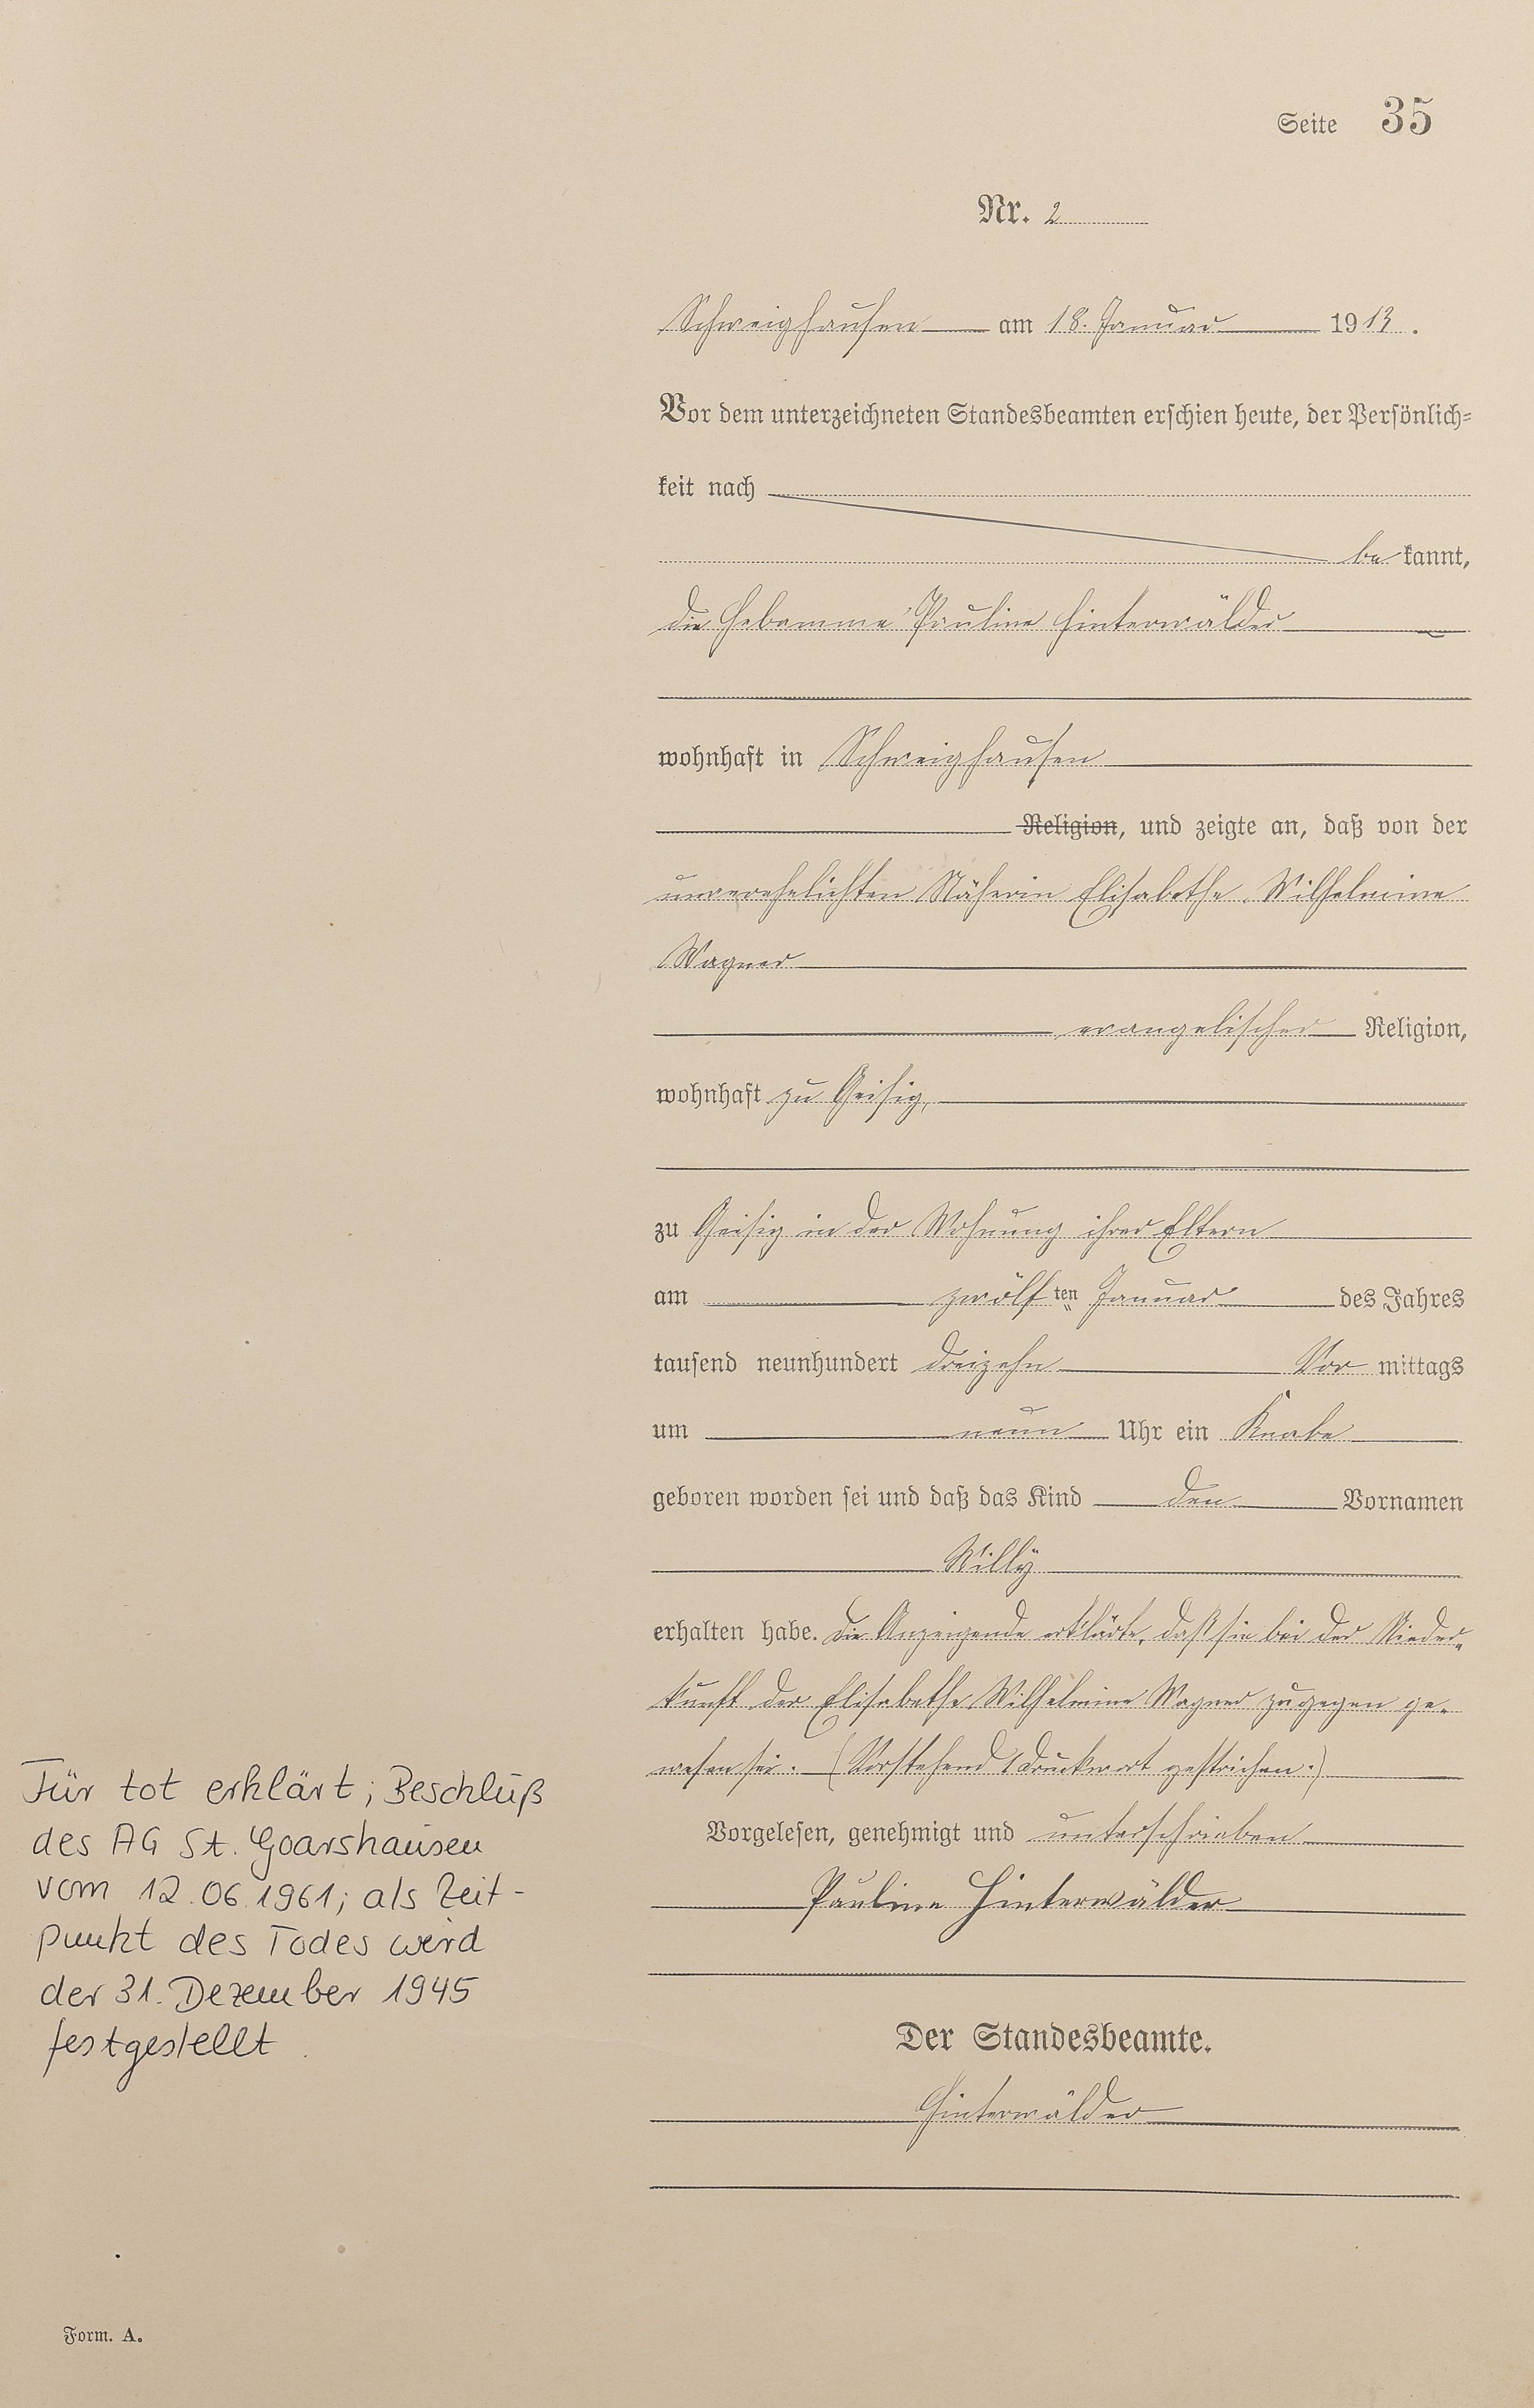 Seite 35
Nr. 2
Schweighausen am 18. Januar 1913.
Vor dem unterzeichneten Standesbeamten erschien heute, der Persönlich-
keit nach
be kannt,
die Hebamme Pauline Hinterwälder
wohnhaft in Schweighausen
Religion, und zeigte an, daß von der
unverehelichten Näherin Elisabethe Wilhelmine
Wagner
evangelischer Religion,
wohnhaft zu Geisig,
zu Geisig in der Wohnung ihrer Eltern
am zwölf ten Januar des Jahres
tausend neunhundert dreizehn Vor mittags
um neun Uhr ein Knabe
geboren worden sei und daß das Kind den Vornamen
Willy
erhalten habe. Die Anzeigende erklärte, daß sie bei der Nieder-
kunft der Elisabethe Wilhelmine Wagner zugegen ge-
wesen sei. (Vorstehend 1 Druckwort gestrichen.)
Vorgelesen, genehmigt und unterschrieben
Pauline Hinterwälder
Der Standesbeamte.
Hinterwälder
Für tot erklärt; Beschluß
des AG St. Goarshausen
vom 12.06.1961; als Zeit-
punkt des Todes wird
der 31. Dezember 1945
festgestellt.
Form. A.